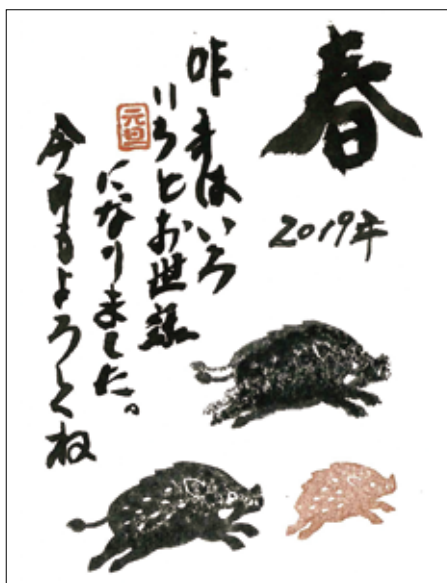 春
2019年
昨年はいろ
いろとお世話
になりました。
今年もよろしくね
元旦